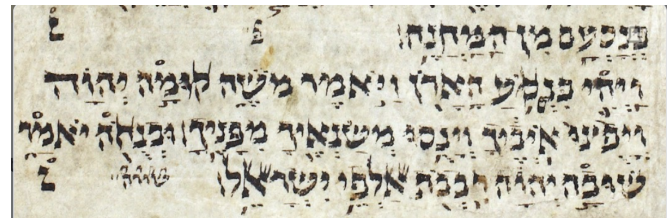 בנסעם מן המחנה ׆ ׆
ויהי בנסע הארן ויאמר משה קומה יהוה
ויפצו איביך וינסו משנאיך מפניך ובנחה יאמר
שובה יהוה רבבה אלפי ישראל ׆